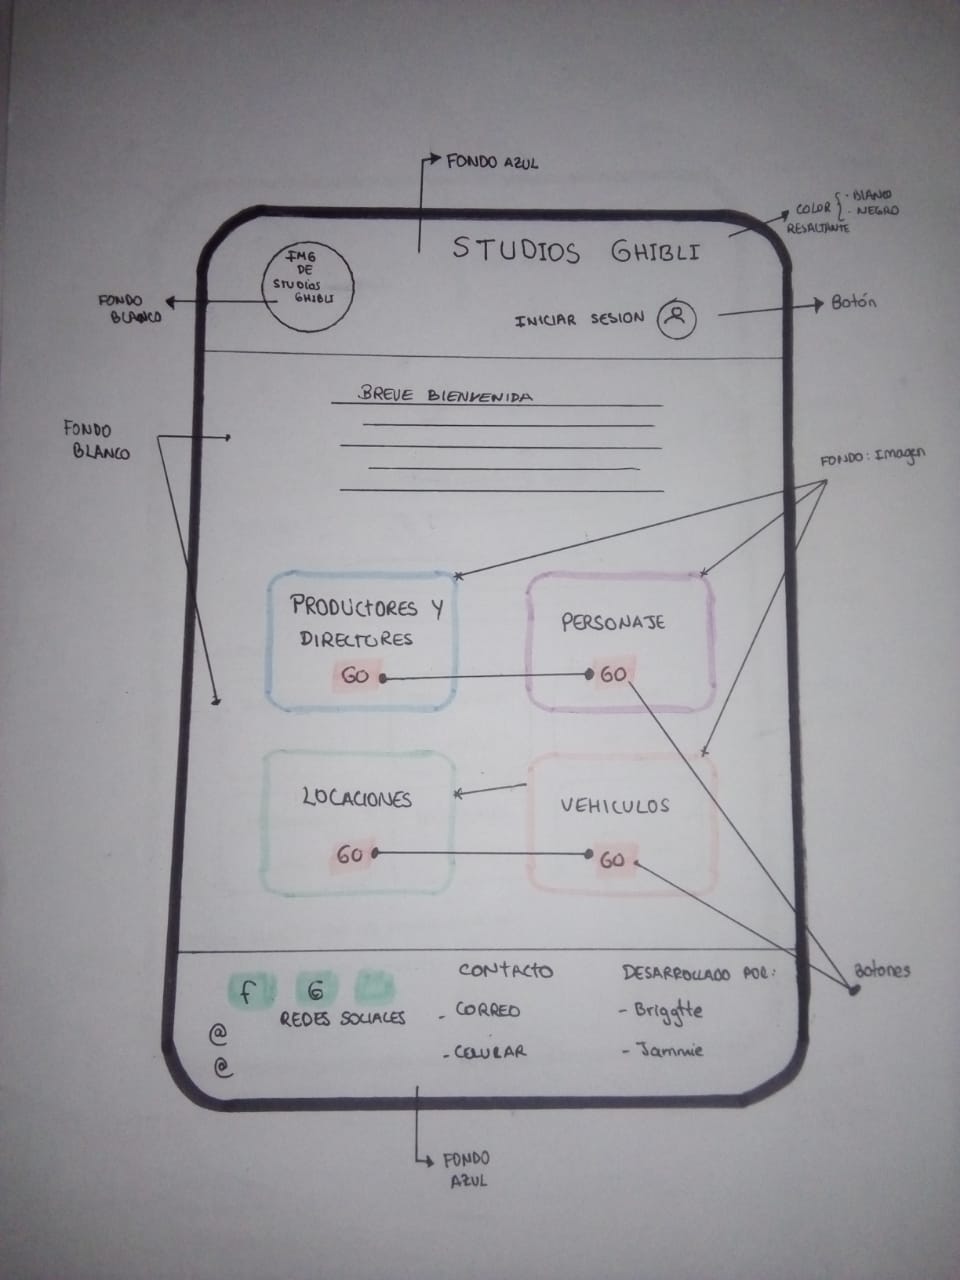 FONDO AZUL
COLOR { · BLANCO
· NEGRO
RESALTANTE
STUDIOS GHIBLI
IMG
DE
STUDIOS
GHIBLI
FONDO
BLANCO
INICIAR SESION
Botón
BREVE BIENVENIDA
FONDO
BLANCO
FONDO: Imagen
PRODUCTORES Y
DIRECTORES
GO
PERSONAJE
GO
LOCACIONES
GO
VEHICULOS
GO
Botones
f G
REDES SOCIALES
@
@
CONTACTO
- CORREO
- CELULAR
DESARROLLADO POR:
- Briggtte
- Jammie
FONDO
AZUL